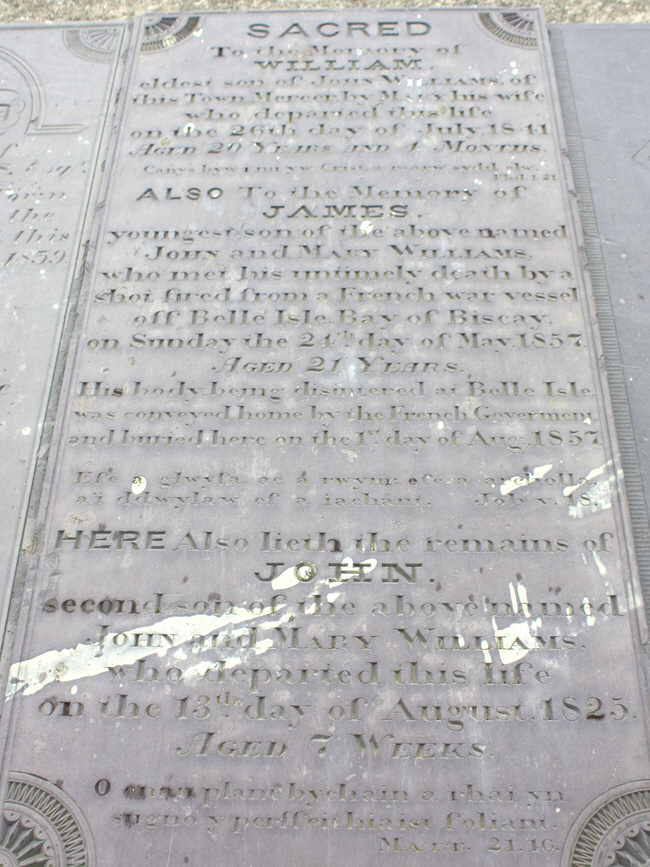 SACRED
To the Memory of
WILLIAM,
eldest son of JOHN WILLIAMS, of
this Town, Mercer, by MARY his wife
who departed this life
on the 26th day of July, 1841
AGED 20 YEARS AND 4 MONTHS.
Canys byw i mi yw Crist a marw sydd elw.
Phil. 1.21
ALSO To the Memory of
JAMES,
youngest son of the above named
JOHN and MARY WILLIAMS.
who met his untimely death by a
shot fired from a French war vessel
off Belle Isle, Bay of Biscay,
on Sunday the 24th day of May, 1857
AGED 21 YEARS.
His body being disintered at Belle Isle
was conveyed home by the French Goverment
and buried here on the 1st day of Aug. 1857
Efe a glwyfa, ac a rwym: efe a archolla,
a'i ddwylaw ef a iachânt. Job v. 18.
HERE Also lieth the remains of
JOHN,
second son of the above named
JOHN and MARY WILLIAMS,
who departed this life
on the 13th day of August, 1825.
AGED 7 WEEKS.
O enau plant bychain a rhai yn
sugno y perffeithiaist foliant.
MATT. 21.16.
Esqr.
Town
the
this
1859.